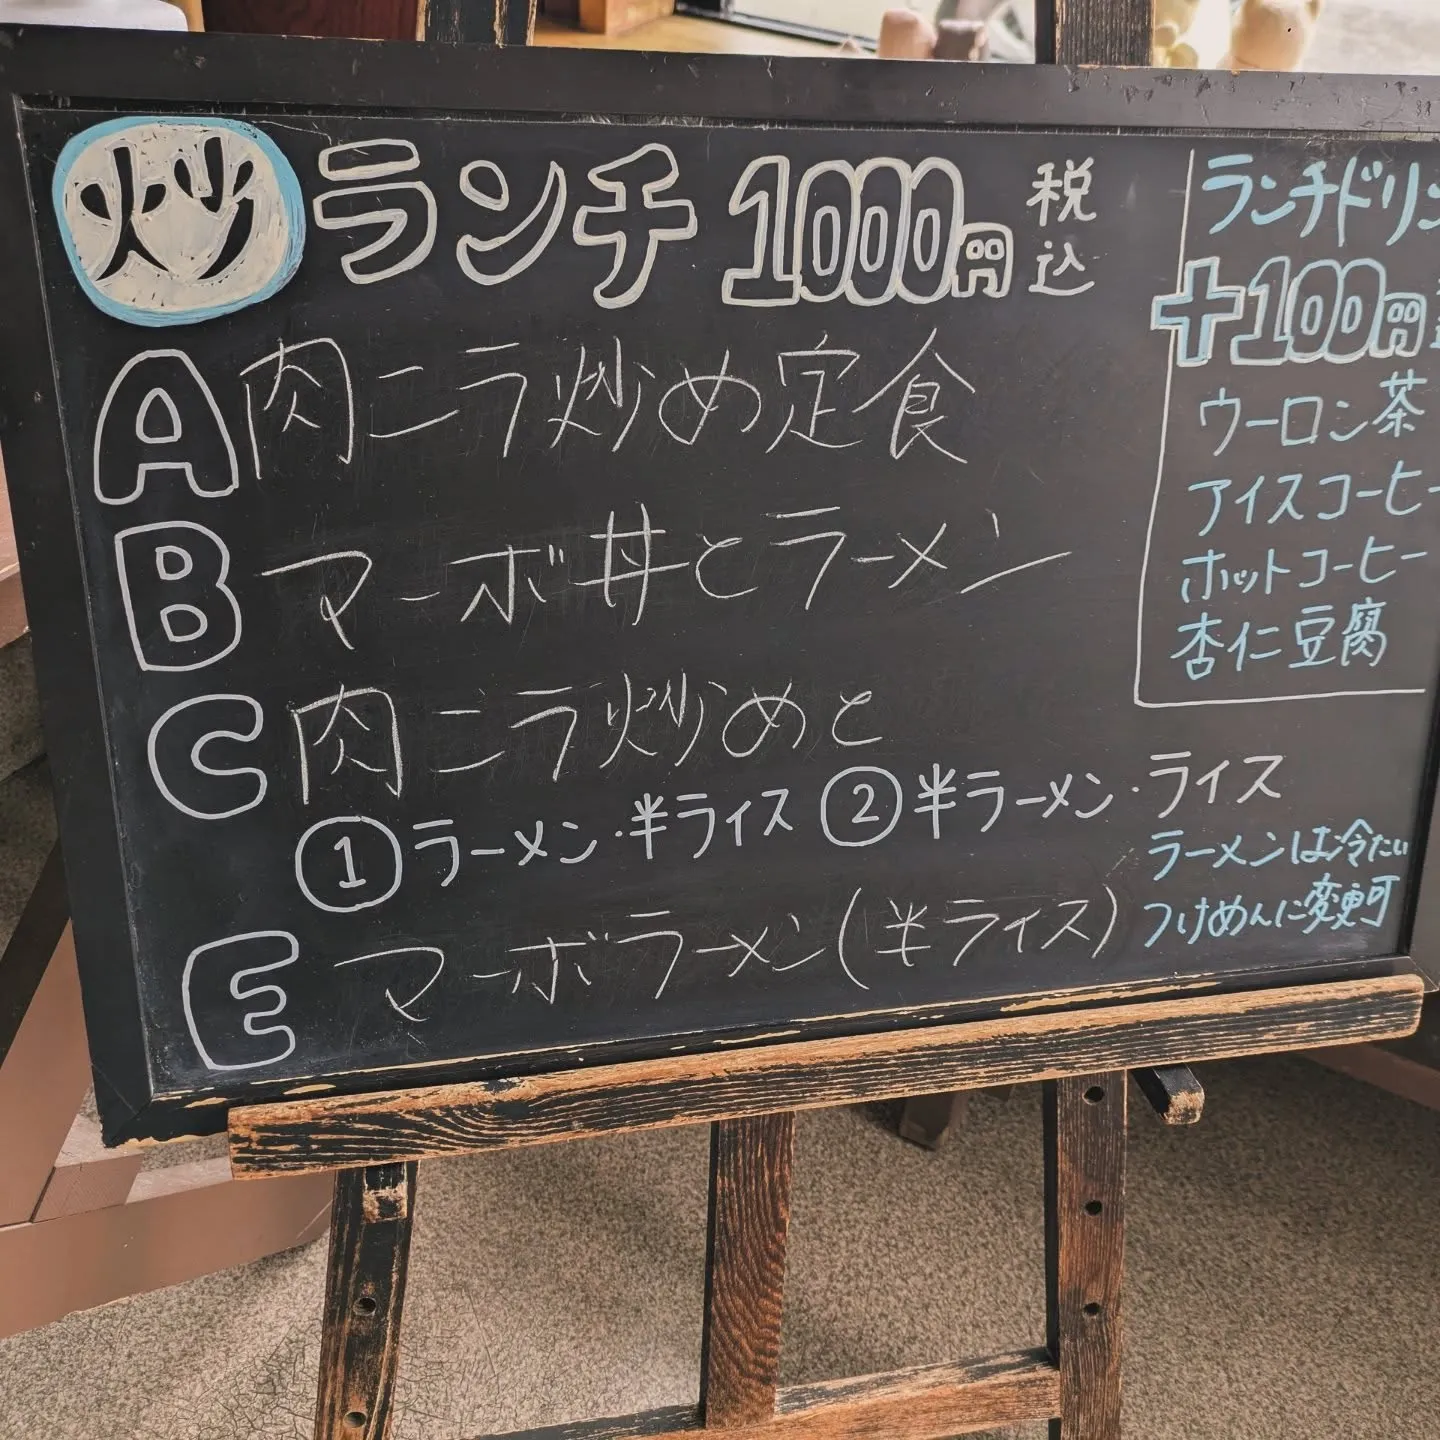 炒 ランチ 1000円 税込
A 肉ニラ炒め定食
B マーボ丼とラーメン
C 肉ニラ炒めと
① ラーメン・半ライス ② 半ラーメン・ライス
E マーボラーメン(半ライス)
ラーメンは冷たい
つけめんに変更可
ランチドリン
+100円
ウーロン茶
アイスコーヒー
ホットコーヒー
杏仁豆腐